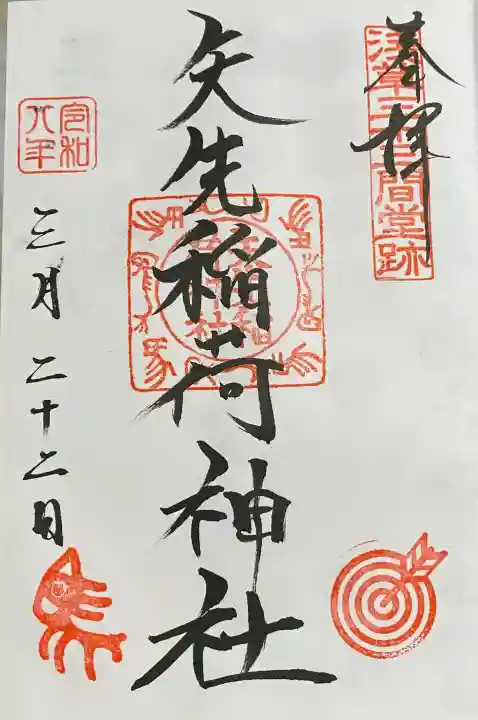 奉拝
浅草三十三間堂跡
矢先稲荷神社
令和八年
三月二十二日